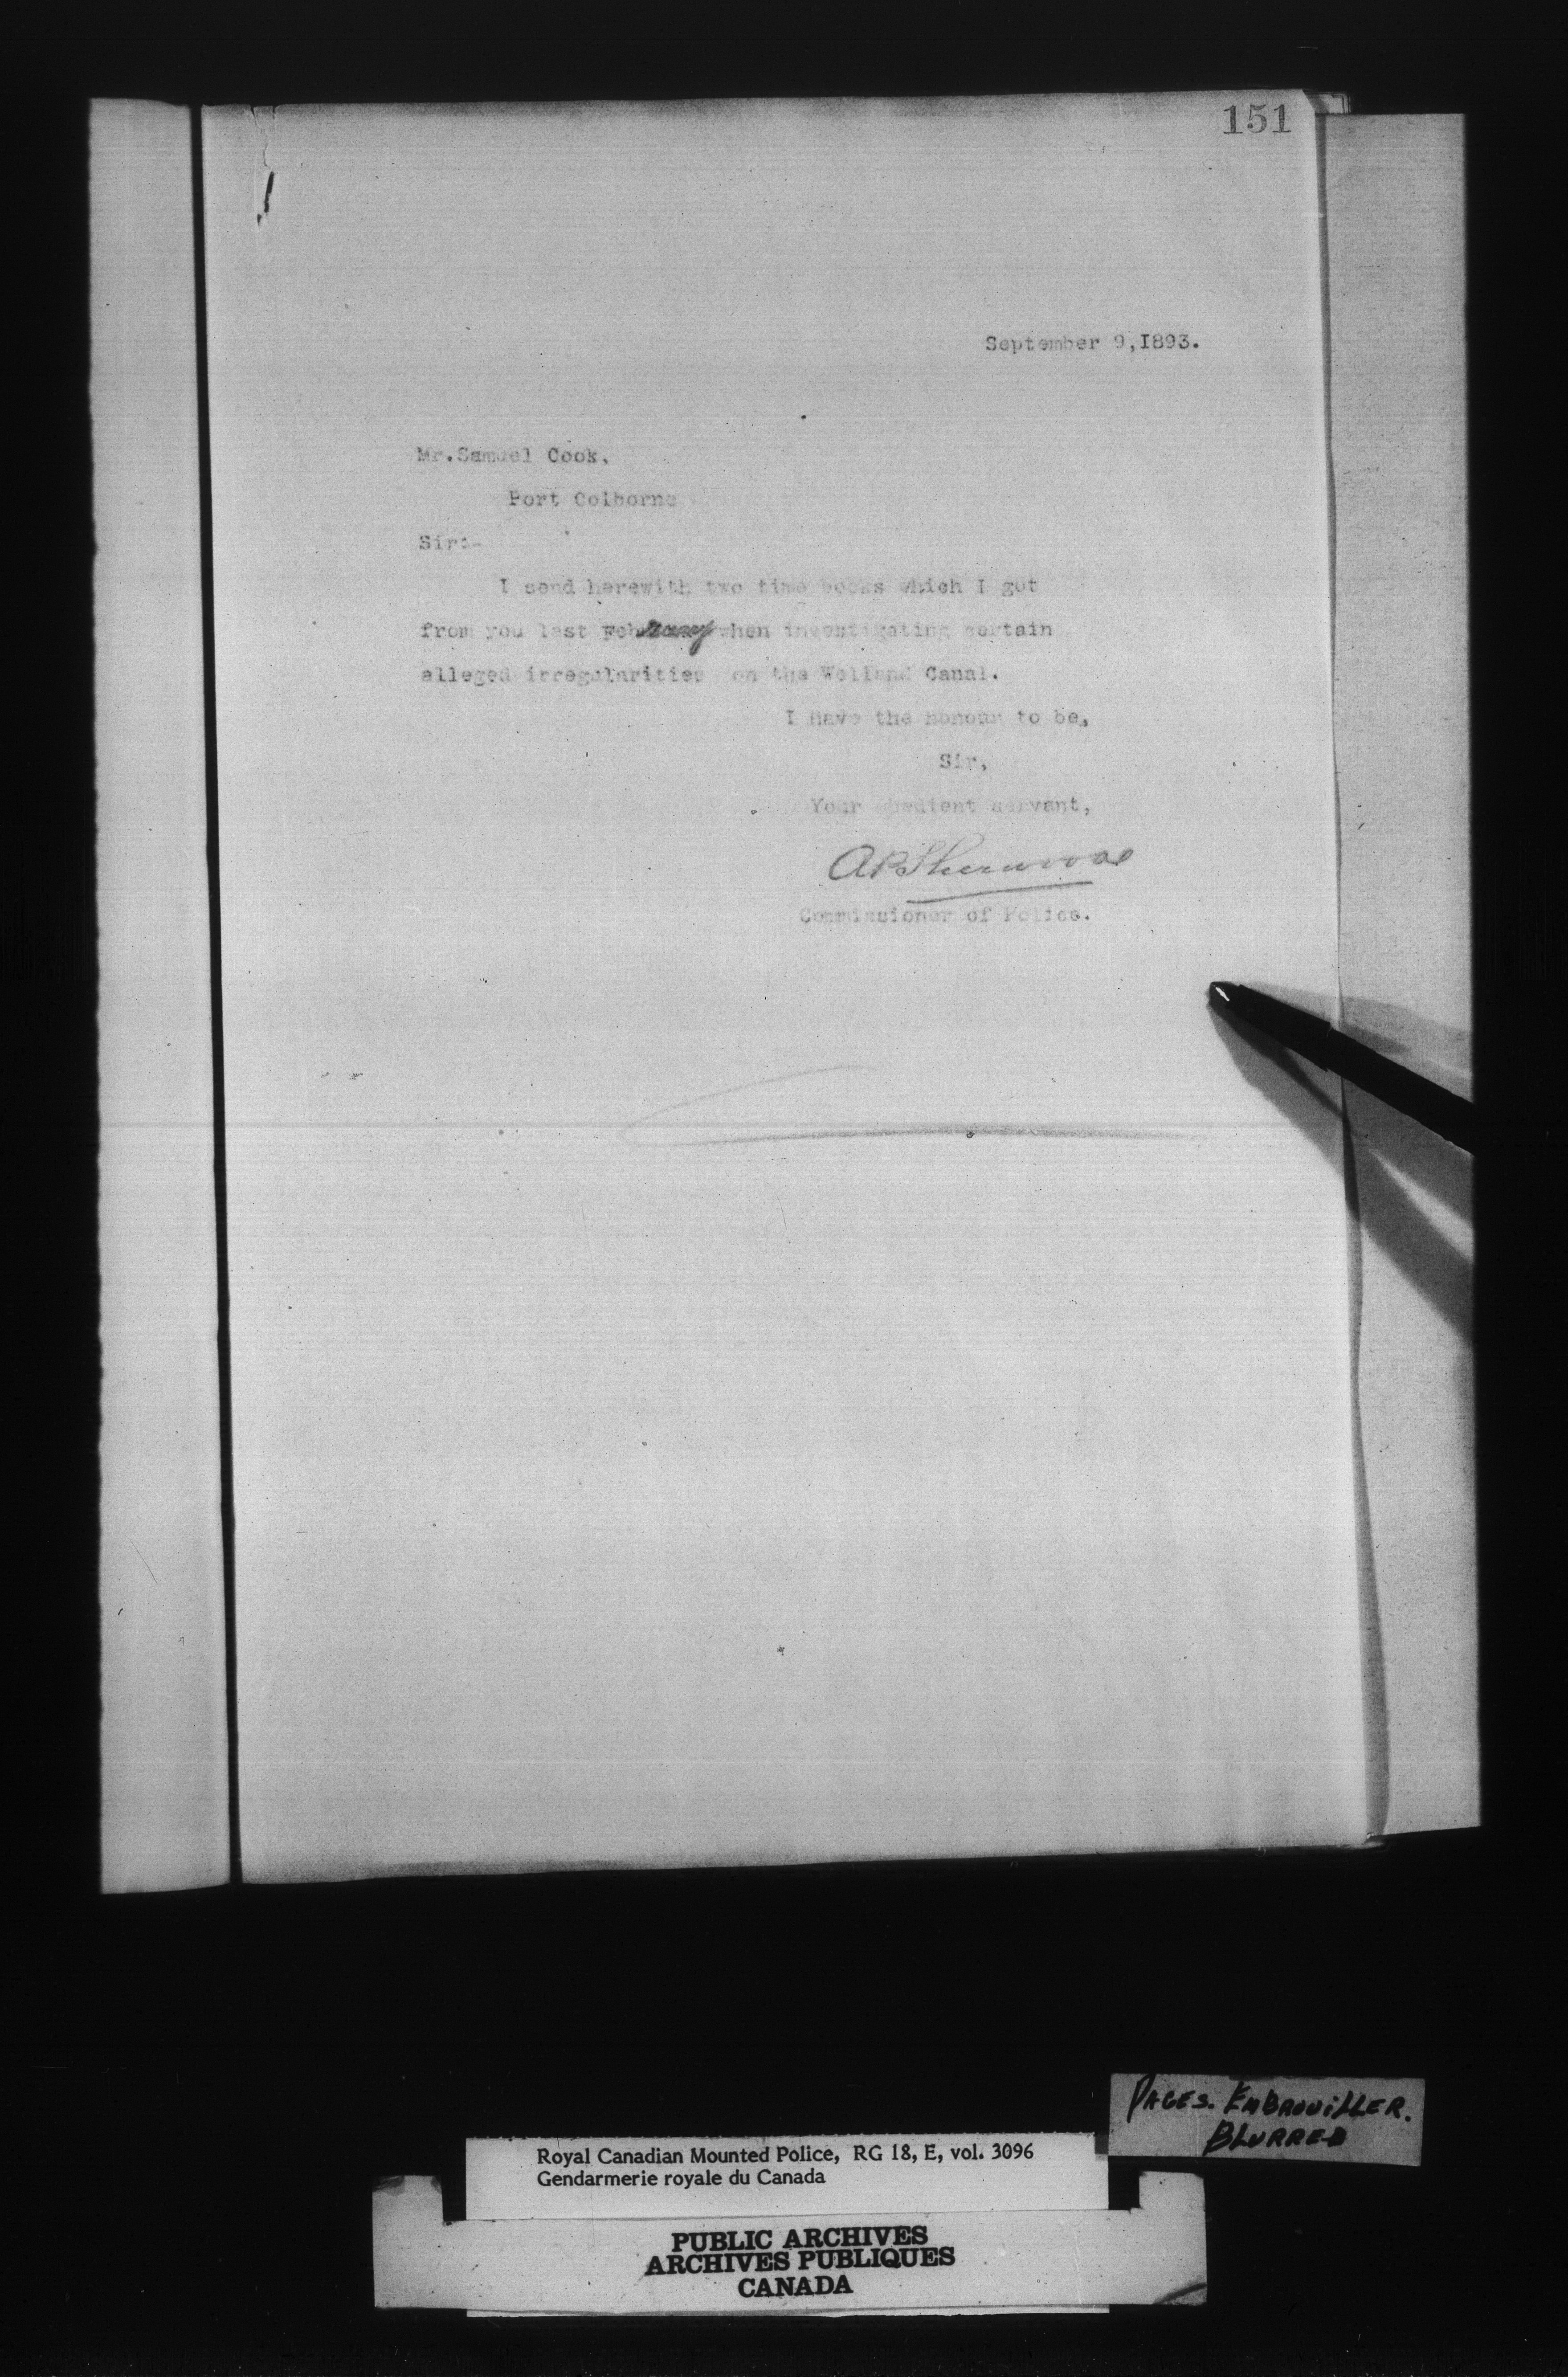 151
September 9,1893.
Mr.Samuel Cook,
Port Colborne
Sir:-
I send herewith two time books which I got
from you last February when investigating certain
alleged irregularities on the Welland Canal.
I have the honour to be,
Sir,
Your obedient servant,
APSherwood
Commissioner of Police.
PAGES. EMBROUILLER.
BLURRED
Royal Canadian Mounted Police, RG 18, E, vol. 3096
Gendarmerie royale du Canada
PUBLIC ARCHIVES
ARCHIVES PUBLIQUES
CANADA